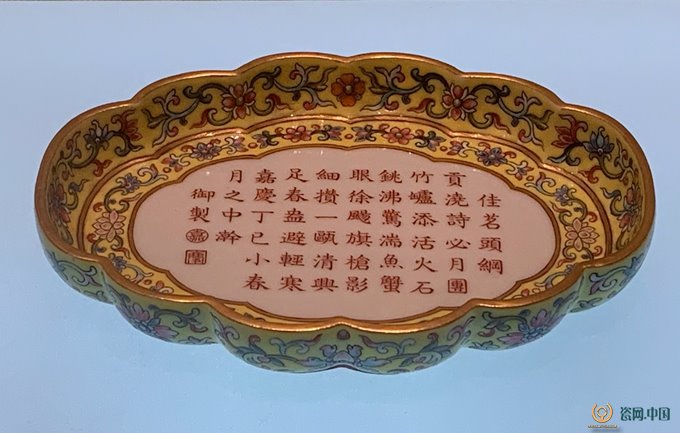 佳茗頭綱
貢澆詩必月團
竹爐添活火石
銚沸驚湍魚蟹
眼徐颺旗槍影
細攢一甌清興
足春盎避輕寒
嘉慶丁巳小春
月之中澣
御製
瓷网.中国